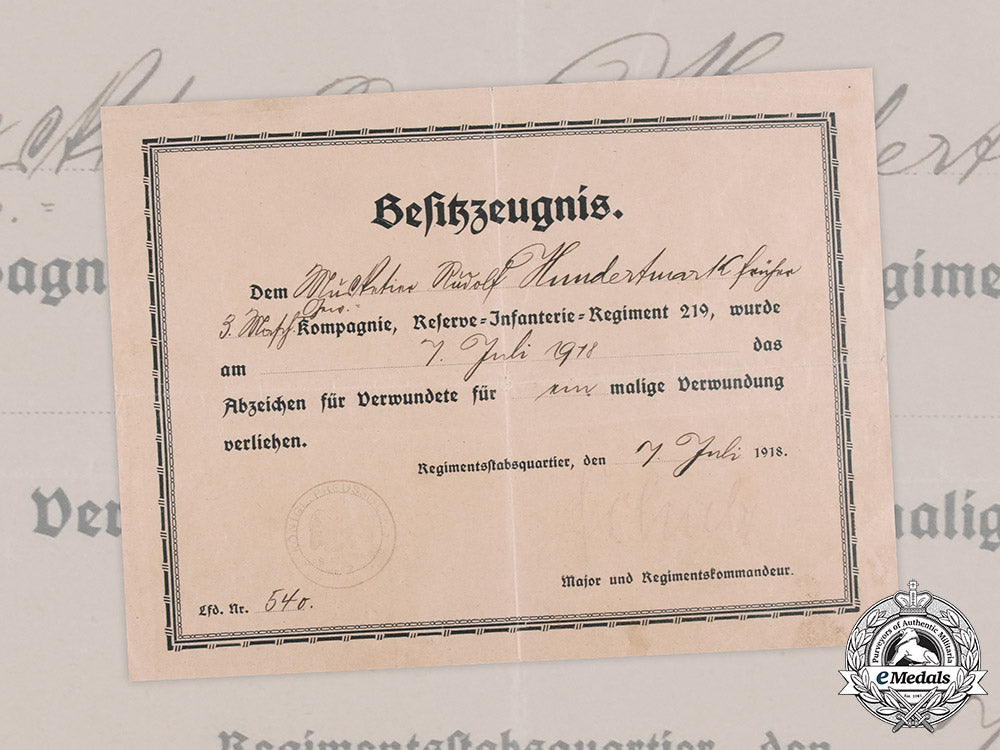 Besitzzeugnis.
Dem Musketier Rudolf Hundertmark früher
3. Masch. Gew.=
Kompagnie, Reserve=Infanterie=Regiment 219, wurde
am 7. Juli 1918 das
Abzeichen für Verwundete für ein malige Verwundung
verliehen.
Regimentsstabsquartier, den 7. Juli 1918.
Major und Regimentskommandeur.
Lfd. Nr. 540.
Purveyors of Authentic Militaria
eMedals